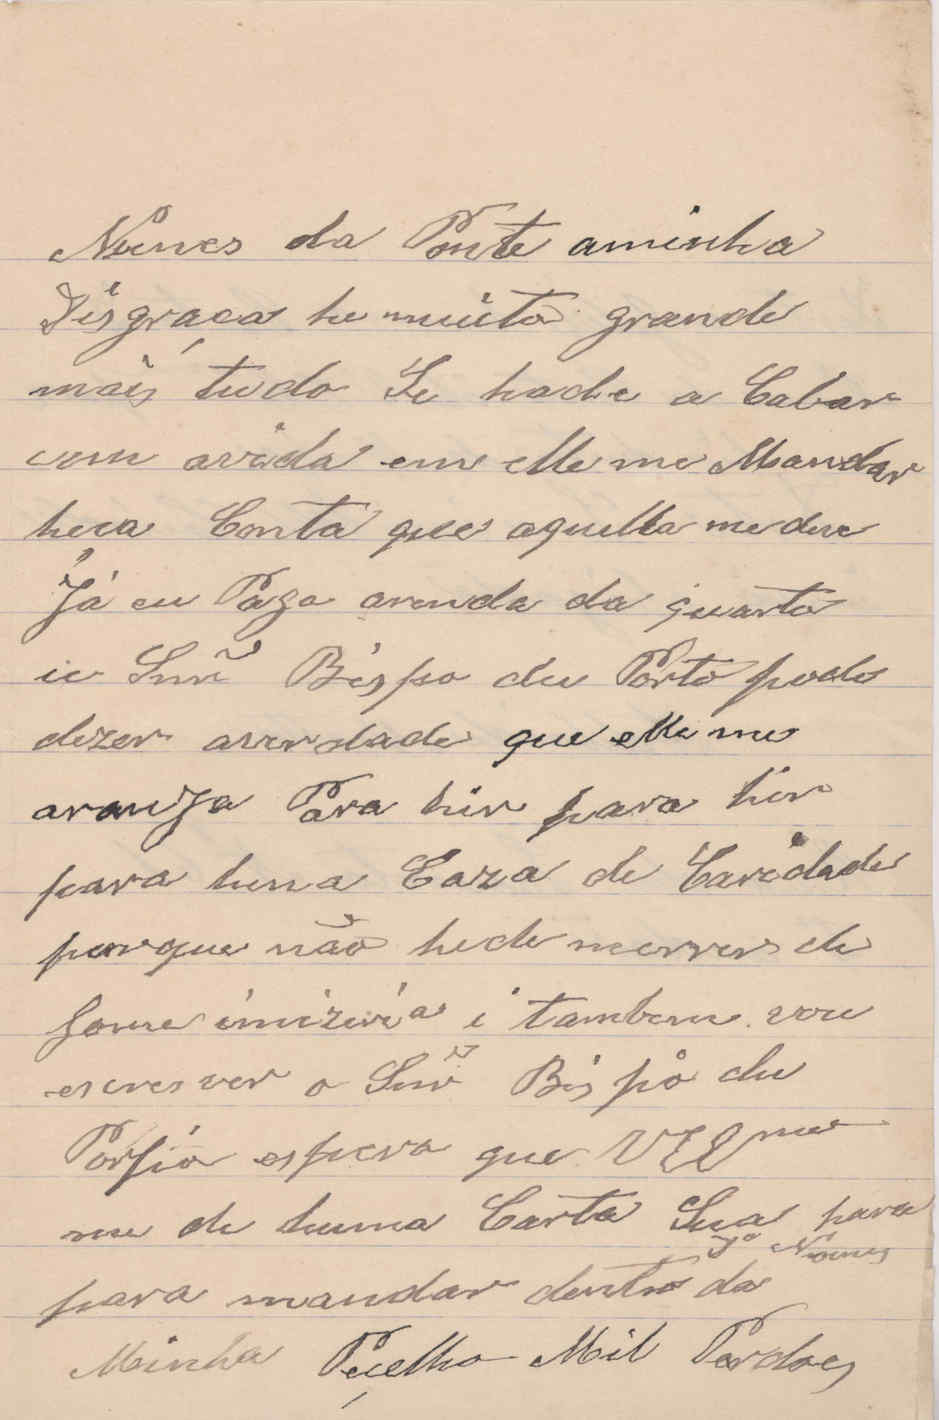 Nunes da Ponte aminha
Disgraça he muito grande
mais tudo Se hade a Cabar
com avida em elle me Mandar
heca Conta que aquella me deu
Já eu Pago arenda da quarto
ie Snr Bispo du Porto pode
dizer averdade que elle me
aranja Para hir para hir
para huma Caza de Caridade
porque não hede morrer de
fome imizeria i tambem vou
escrever o Snr Bispo du
espero que
me de huma Carta Sua para
Jº Nunes
para mandar dentro da
Minha Peçolho Mil Perdoes